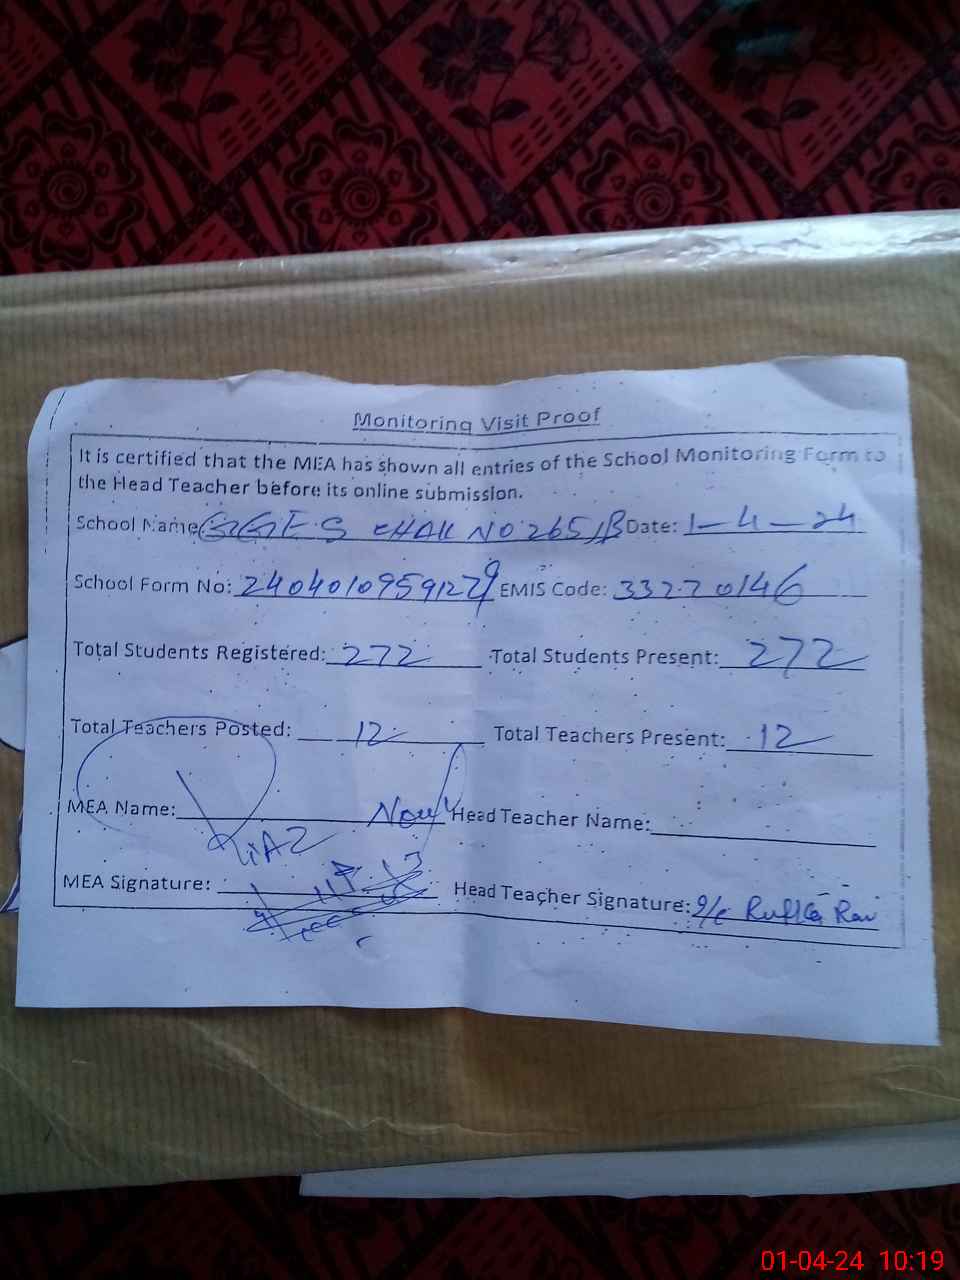 Monitoring Visit Proof
It is certified that the MEA has shown all entries of the School Monitoring Form to
the Head Teacher before its online submission.
School Name GGES CHAK NO 265/JB Date: 1-4-24
School Form No: EMIS Code: 33220146
Total Students Registered: 272 Total Students Present: 272
Total Teachers Posted: 12 Total Teachers Present: 12
MEA Name: Head Teacher Name:
RIAZ
MEA Signature: Head Teacher Signature:
01-04-24 10:19